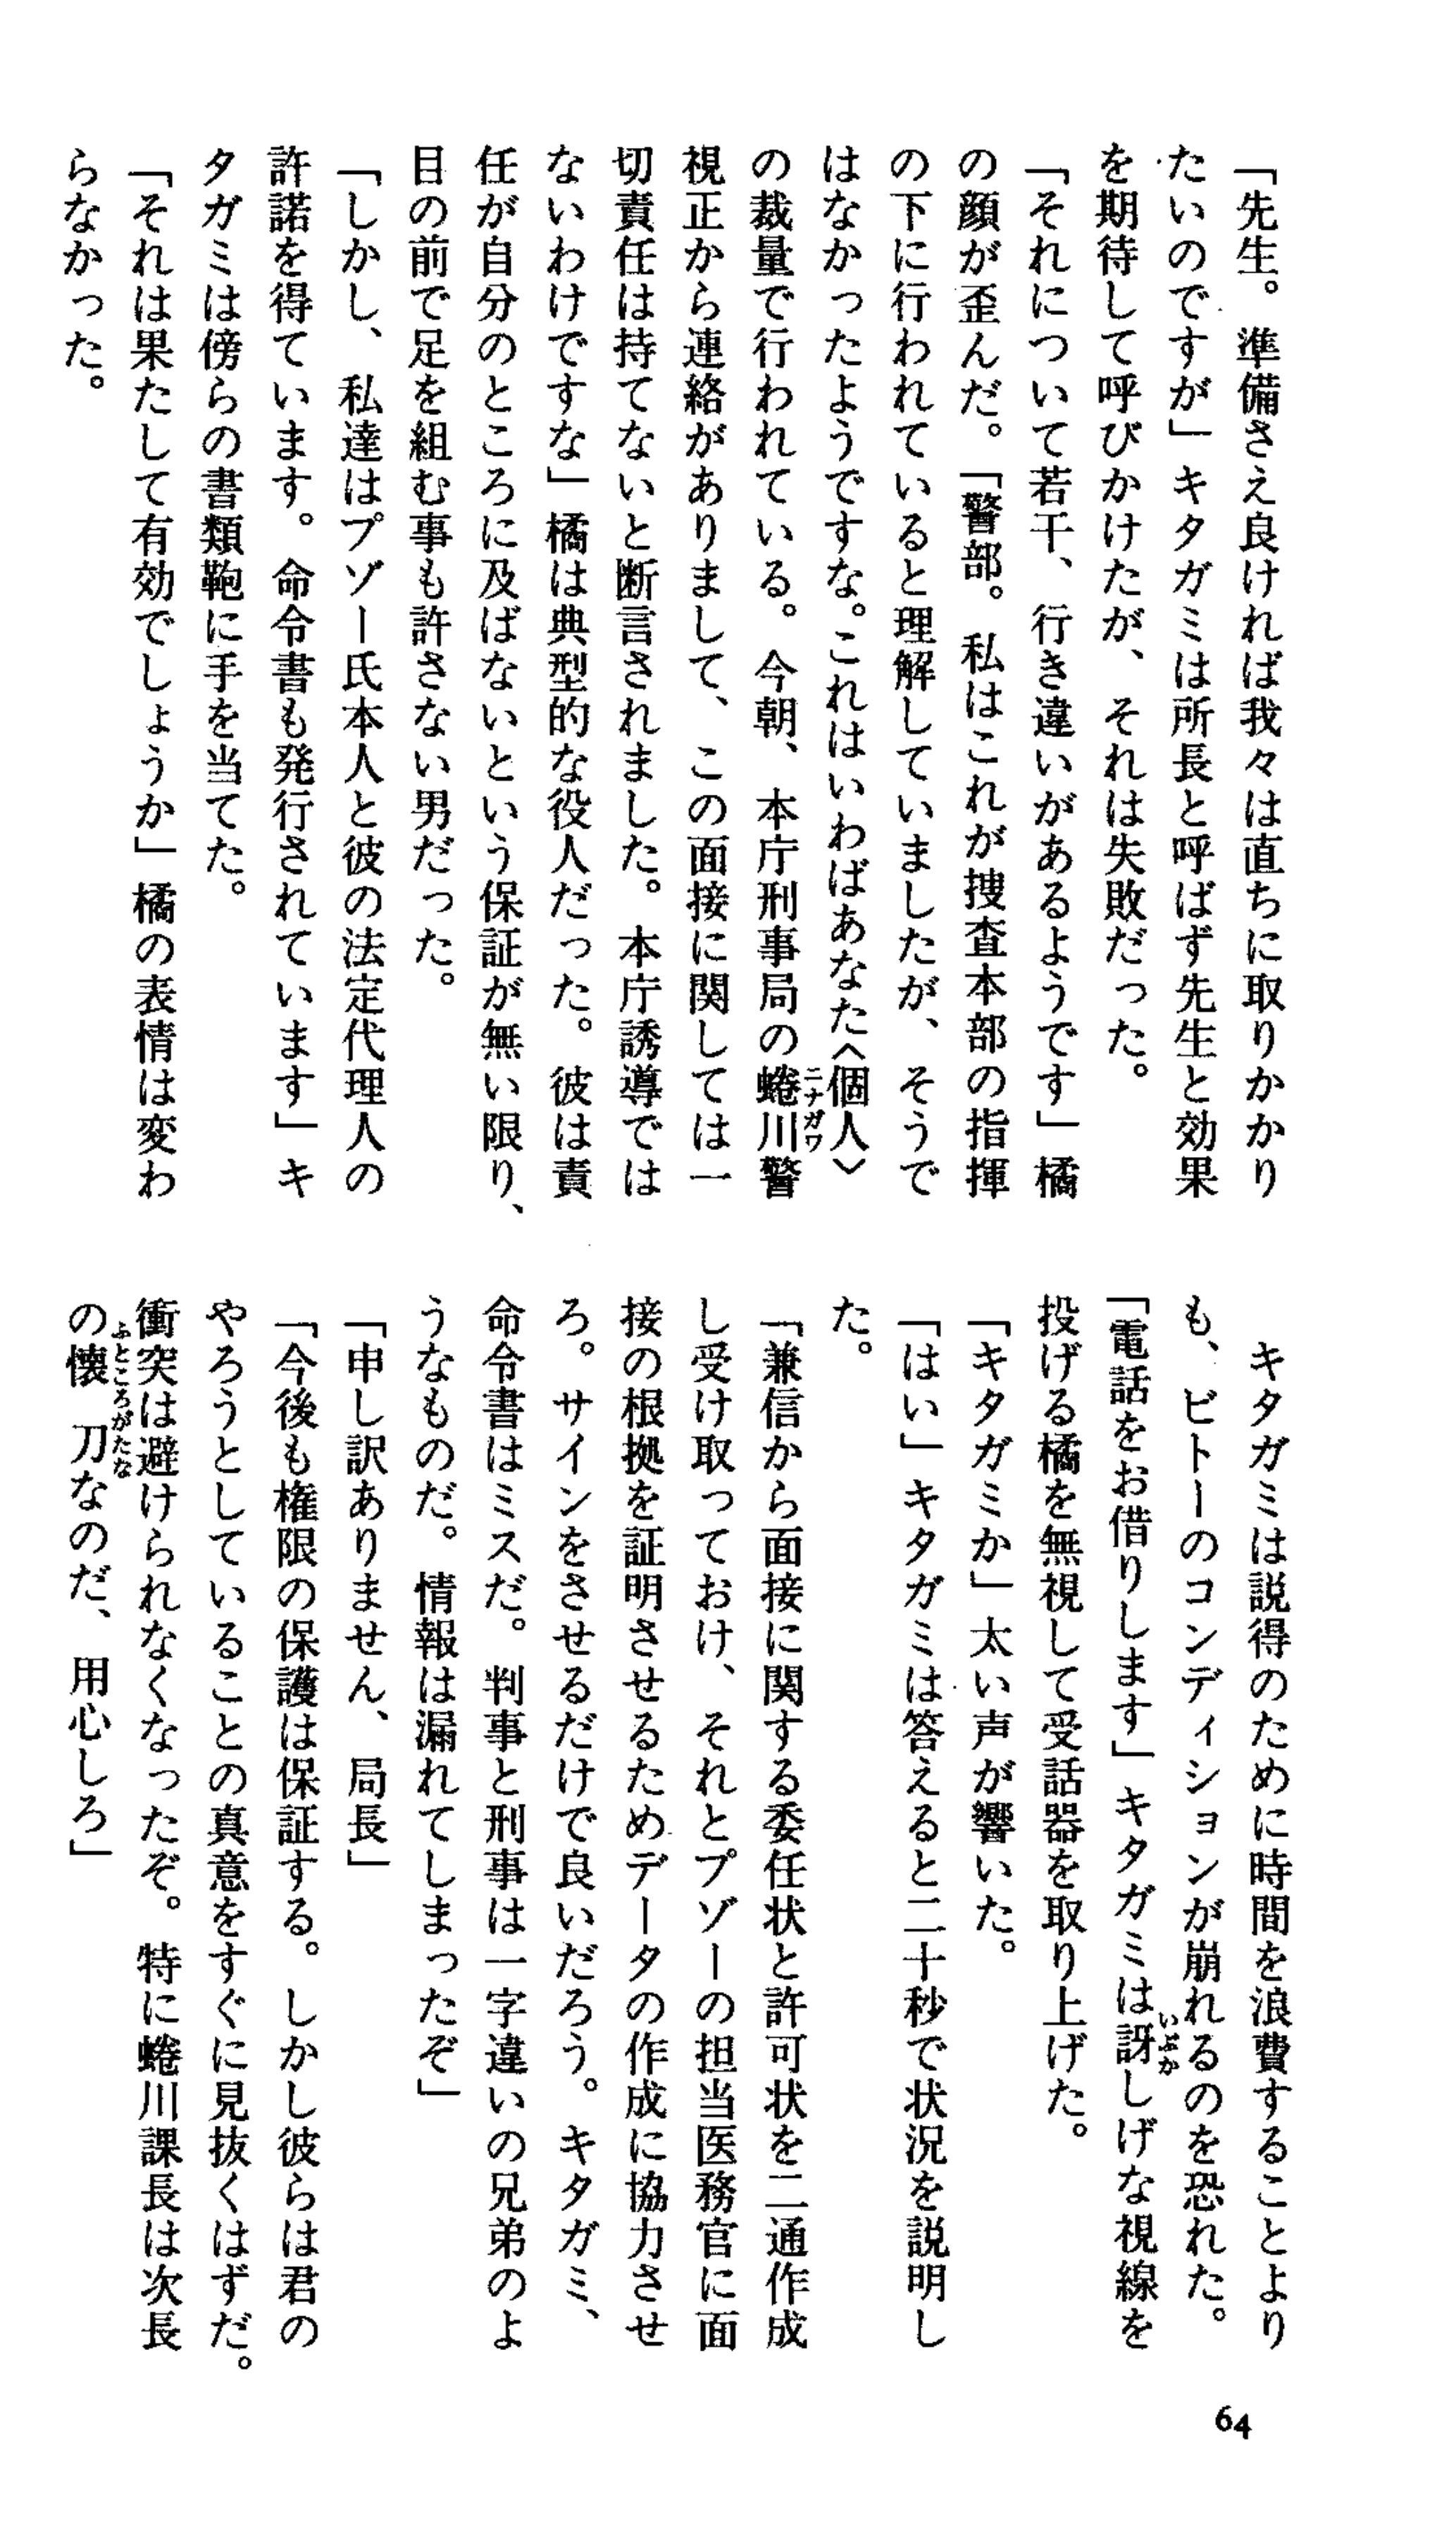 「先生。準備さえ良ければ我々は直ちに取りかかり
たいのですが」キタガミは所長と呼ばず先生と効果
を期待して呼びかけたが、それは失敗だった。
「それについて若干、行き違いがあるようです」橘
の顔が歪んだ。「警部。私はこれが捜査本部の指揮
の下に行われていると理解していましたが、そうで
はなかったようですな。これはいわばあなた〈個人〉
の裁量で行われている。今朝、本庁刑事局の蜷川警
視正から連絡がありまして、この面接に関しては一
切責任は持てないと断言されました。本庁誘導では
ないわけですな」橘は典型的な役人だった。彼は責
任が自分のところに及ばないという保証が無い限り、
目の前で足を組む事も許さない男だった。
「しかし、私達はプゾー氏本人と彼の法定代理人の
許諾を得ています。命令書も発行されています」キ
タガミは傍らの書類鞄に手を当てた。
「それは果たして有効でしょうか」橘の表情は変わ
らなかった。
キタガミは説得のために時間を浪費することより
も、ビトーのコンディションが崩れるのを恐れた。
「電話をお借りします」キタガミは訝しげな視線を
投げる橘を無視して受話器を取り上げた。
「キタガミか」太い声が響いた。
「はい」キタガミは答えると二十秒で状況を説明し
た。
「兼信から面接に関する委任状と許可状を二通作成
し受け取っておけ、それとプゾーの担当医務官に面
接の根拠を証明させるためデータの作成に協力させ
ろ。サインをさせるだけで良いだろう。キタガミ、
命令書はミスだ。判事と刑事は一字違いの兄弟のよ
うなものだ。情報は漏れてしまったぞ」
「申し訳ありません、局長」
「今後も権限の保護は保証する。しかし彼らは君の
やろうとしていることの真意をすぐに見抜くはずだ。
衝突は避けられなくなったぞ。特に蜷川課長は次長
の懐刀なのだ、用心しろ」
64